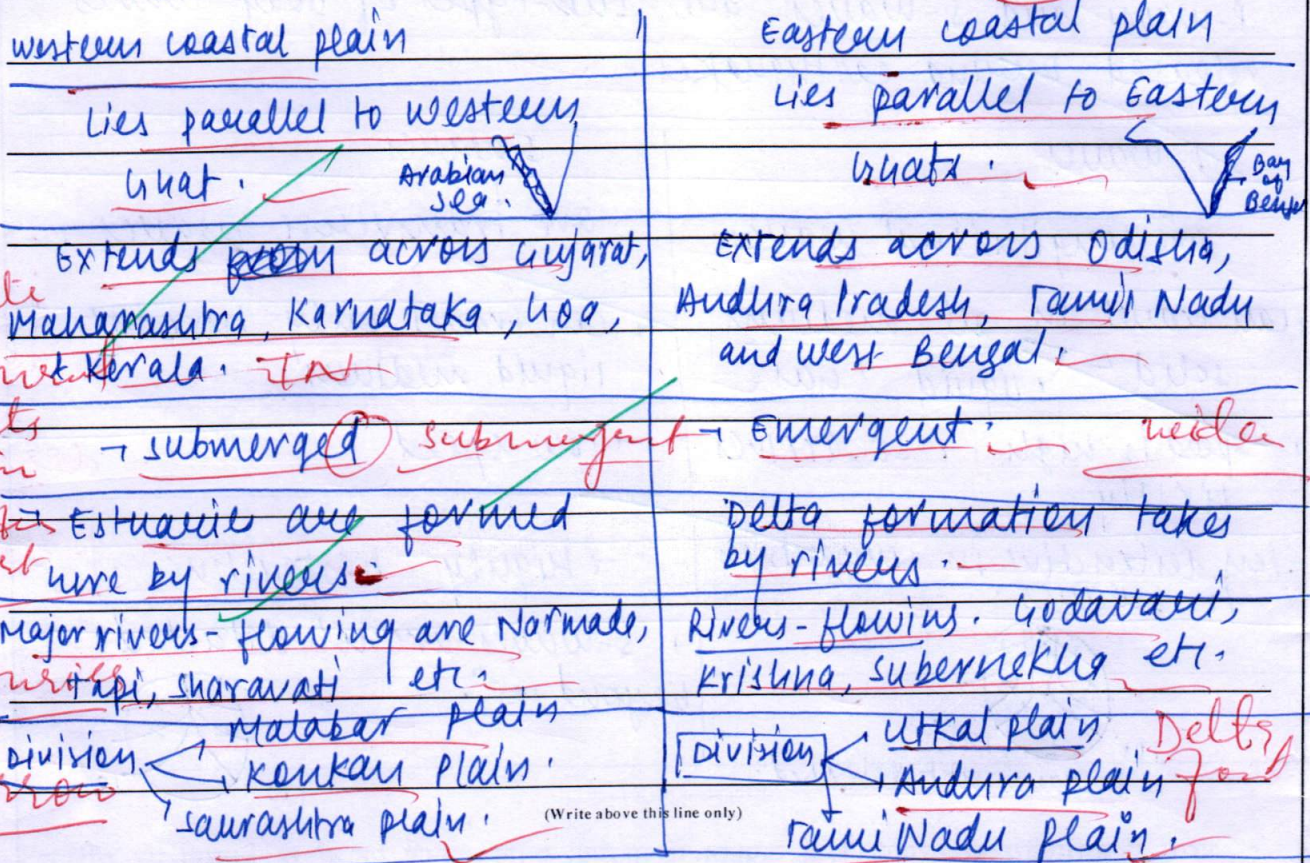 Western coastal plain
Lies parallel to western
Ghat.
Arabian
sea.
Extends across Gujarat,
Maharashtra, Karnataka, Goa,
& Kerala. TN
→ submerged submergent
→ Estuaries are formed
here by rivers.
Major rivers flowing are Narmade,
Tapi, sharavati etc.
Division
Malabar plain
Konkan plain.
Saurashtra plain.
Eastern coastal plain
Lies parallel to Eastern
Ghats.
Bay
of
Bengal
Extends across Odisha,
Andhra Pradesh, Tamil Nadu
and West Bengal.
→ Emergent. wider
Delta formation takes
by rivers.
Rivers-flowing. Godavari,
Krishna, Subernekha etc.
Division
Utkal plain
Andhra plain
Tamil Nadu plain.
Delta
(Write above this line only)